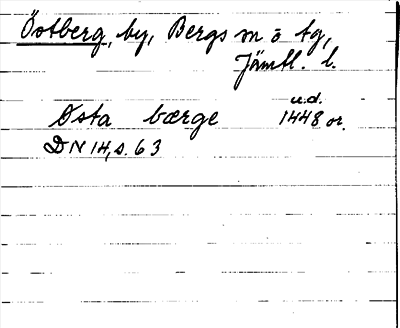 Östberg, by, Bergs m o tg,
Jämtl. l.
u.d.
Østa bærge 1448 or.
DN 14, s. 63